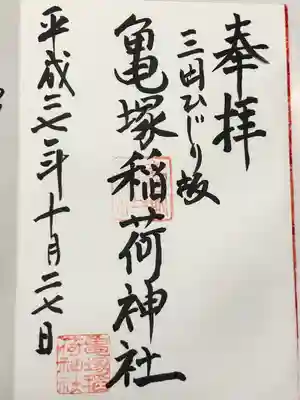 奉拝
三田ひじり坂
亀塚稲荷神社
平成二七年十月二七日